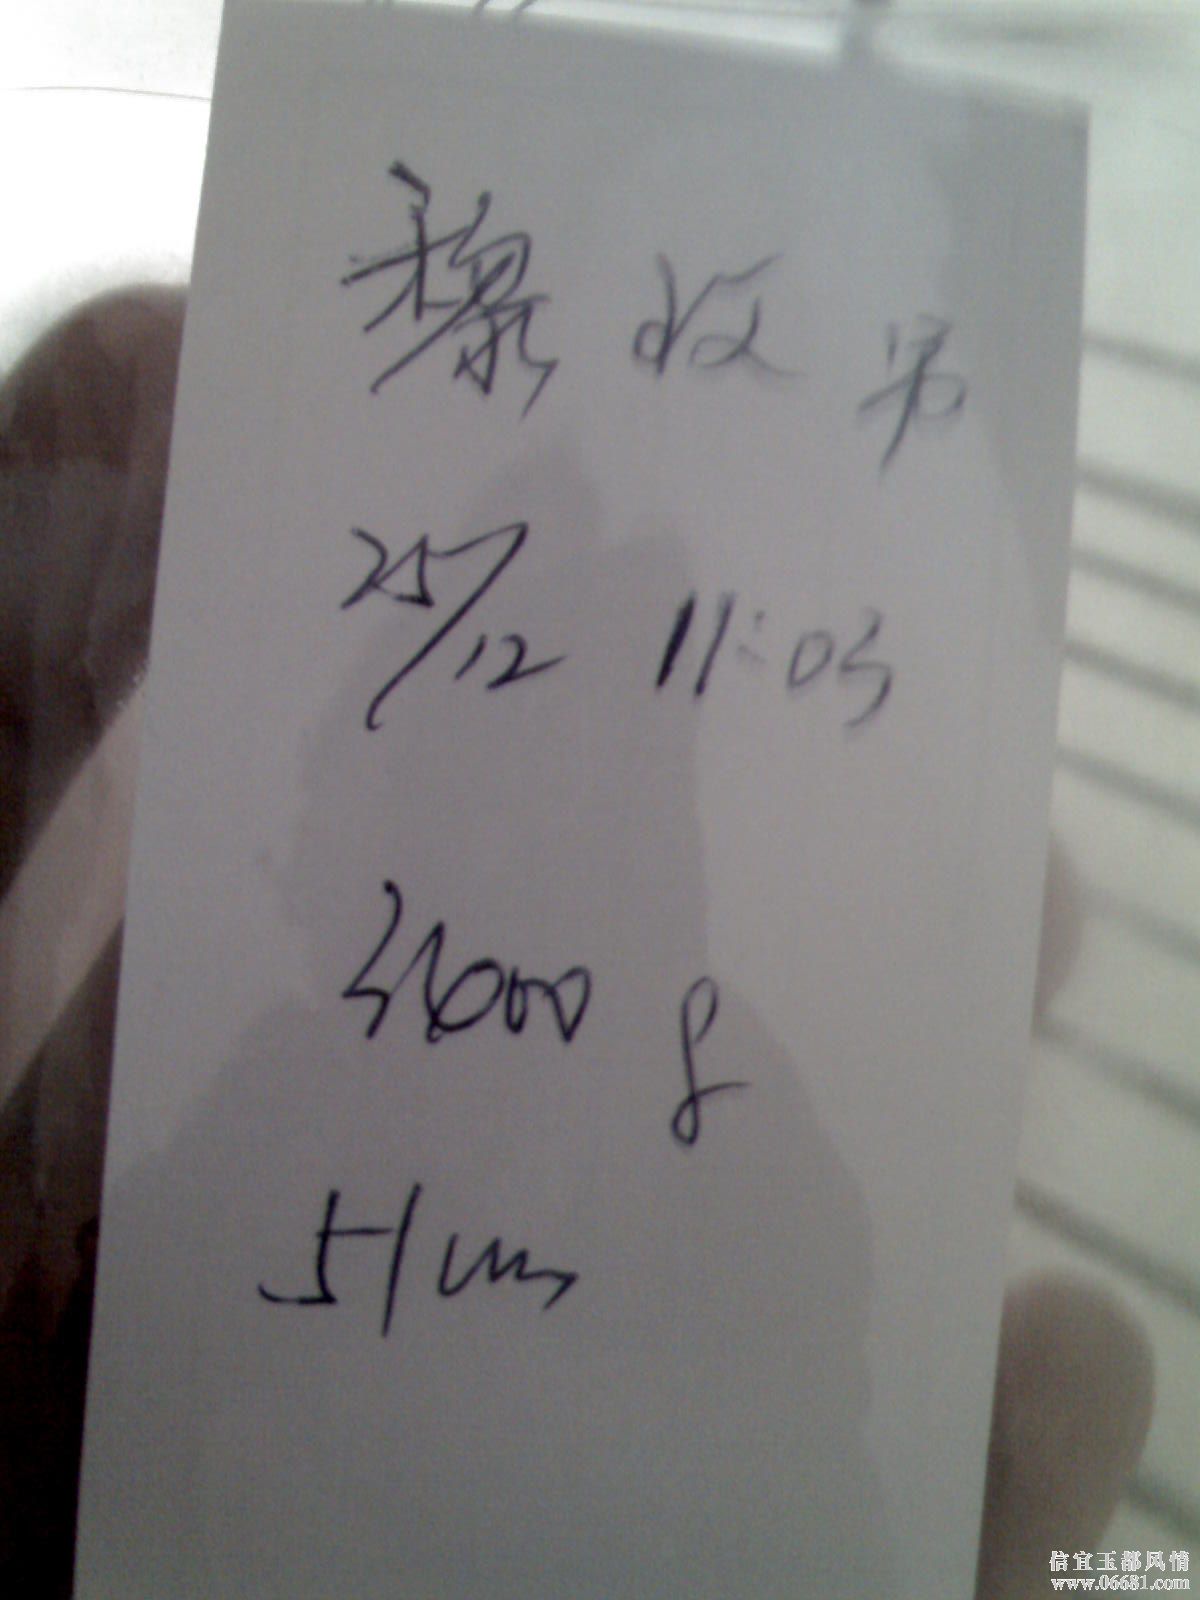 25/12 11:03
3600 g
51cm
信宜玉都风情
www.06681.com